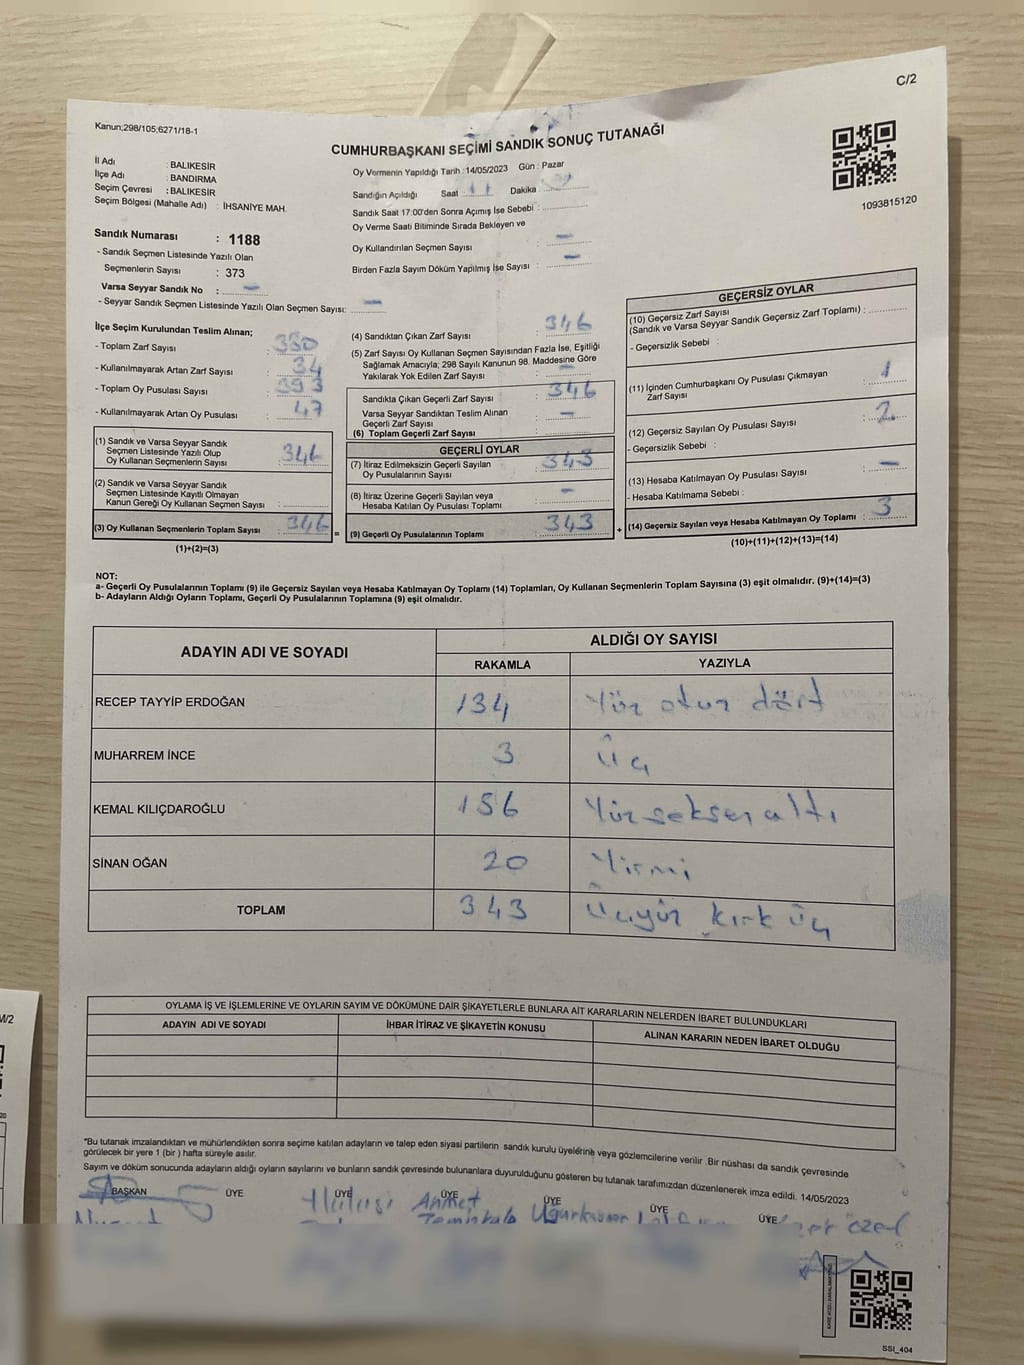 C/2
Kanun;298/105;6271/18-1
CUMHURBAŞKANI SEÇİMİ SANDIK SONUÇ TUTANAĞI
İl Adı : BALIKESİR
İlçe Adı : BANDIRMA
Seçim Çevresi : BALIKESİR
Seçim Bölgesi (Mahalle Adı) : İHSANİYE MAH.
Oy Vermenin Yapıldığı Tarih : 14/05/2023 Gün : Pazar
Sandığın Açıldığı Saat : Dakika :
Sandık Saat 17:00'den Sonra Açımış İse Sebebi :
Oy Verme Saati Bitiminde Sırada Bekleyen ve
Oy Kullandırılan Seçmen Sayısı : -
Birden Fazla Sayım Döküm Yapılmış İse Sayısı : -
1093815120
Sandık Numarası : 1188
- Sandık Seçmen Listesinde Yazılı Olan
Seçmenlerin Sayısı : 373
Varsa Seyyar Sandık No : -
- Seyyar Sandık Seçmen Listesinde Yazılı Olan Seçmen Sayısı: -
İlçe Seçim Kurulundan Teslim Alınan;
- Toplam Zarf Sayısı : 380
- Kullanılmayarak Artan Zarf Sayısı : 34
- Toplam Oy Pusulası Sayısı : 393
- Kullanılmayarak Artan Oy Pusulası : 47
(1) Sandık ve Varsa Seyyar Sandık
Seçmen Listesinde Yazılı Olup
Oy Kullanan Seçmenlerin Sayısı : 346
(2) Sandık ve Varsa Seyyar Sandık
Seçmen Listesinde Kayıtlı Olmayan
Kanun Gereği Oy Kullanan Seçmen Sayısı :
(3) Oy Kullanan Seçmenlerin Toplam Sayısı : 346 =
(1)+(2)=(3)
(4) Sandıktan Çıkan Zarf Sayısı : 346
(5) Zarf Sayısı Oy Kullanan Seçmen Sayısından Fazla İse, Eşitliği
Sağlamak Amacıyla; 298 Sayılı Kanunun 98. Maddesine Göre
Yakılarak Yok Edilen Zarf Sayısı : -
Sandıkta Çıkan Geçerli Zarf Sayısı : 346
Varsa Seyyar Sandıktan Teslim Alınan
Geçerli Zarf Sayısı : -
(6) Toplam Geçerli Zarf Sayısı :
GEÇERLİ OYLAR
(7) İtiraz Edilmeksizin Geçerli Sayılan
Oy Pusulalarının Sayısı : 343
(8) İtiraz Üzerine Geçerli Sayılan veya
Hesaba Katılan Oy Pusulası Toplamı : -
(9) Geçerli Oy Pusulalarının Toplamı : 343 +
GEÇERSİZ OYLAR
(10) Geçersiz Zarf Sayısı
(Sandık ve Varsa Seyyar Sandık Geçersiz Zarf Toplamı) :
- Geçersizlik Sebebi :
(11) İçinden Cumhurbaşkanı Oy Pusulası Çıkmayan
Zarf Sayısı : 1
(12) Geçersiz Sayılan Oy Pusulası Sayısı : 2
- Geçersizlik Sebebi :
(13) Hesaba Katılmayan Oy Pusulası Sayısı : -
- Hesaba Katılmama Sebebi :
(14) Geçersiz Sayılan veya Hesaba Katılmayan Oy Toplamı : 3
(10)+(11)+(12)+(13)=(14)
NOT:
a- Geçerli Oy Pusulalarının Toplamı (9) ile Geçersiz Sayılan veya Hesaba Katılmayan Oy Toplamı (14) Toplamları, Oy Kullanan Seçmenlerin Toplam Sayısına (3) eşit olmalıdır. (9)+(14)=(3)
b- Adayların Aldığı Oyların Toplamı, Geçerli Oy Pusulalarının Toplamına (9) eşit olmalıdır.
ADAYIN ADI VE SOYADI ALDIĞI OY SAYISI
RAKAMLA YAZIYLA
RECEP TAYYİP ERDOĞAN 134 Yüz otuz dört
MUHARREM İNCE 3 Üç
KEMAL KILIÇDAROĞLU 186 Yüz seksen altı
SİNAN OĞAN 20 Yirmi
TOPLAM 343 Üçyüz kırk üç
OYLAMA İŞ VE İŞLEMLERİNE VE OYLARIN SAYIM VE DÖKÜMÜNE DAİR ŞİKAYETLERLE BUNLARA AİT KARARLARIN NELERDEN İBARET BULUNDUKLARI
ADAYIN ADI VE SOYADI İHBAR İTİRAZ VE ŞİKAYETİN KONUSU ALINAN KARARIN NEDEN İBARET OLDUĞU
*Bu tutanak imzalandıktan ve mühürlendikten sonra seçime katılan adayların ve talep eden siyasi partilerin sandık kurulu üyelerine veya gözlemcilerine verilir .Bir nüshası da sandık çevresinde
görülecek bir yere 1 (bir ) hafta süreyle asılır.
Sayım ve döküm sonucunda adayların aldığı oyların sayılarını ve bunların sandık çevresinde bulunanlara duyurulduğunu gösteren bu tutanak tarafımızdan düzenlenerek imza edildi. 14/05/2023
BAŞKAN ÜYE ÜYE ÜYE ÜYE ÜYE ÜYE
Hulusi Ahmet özel
SSI_404
M/2